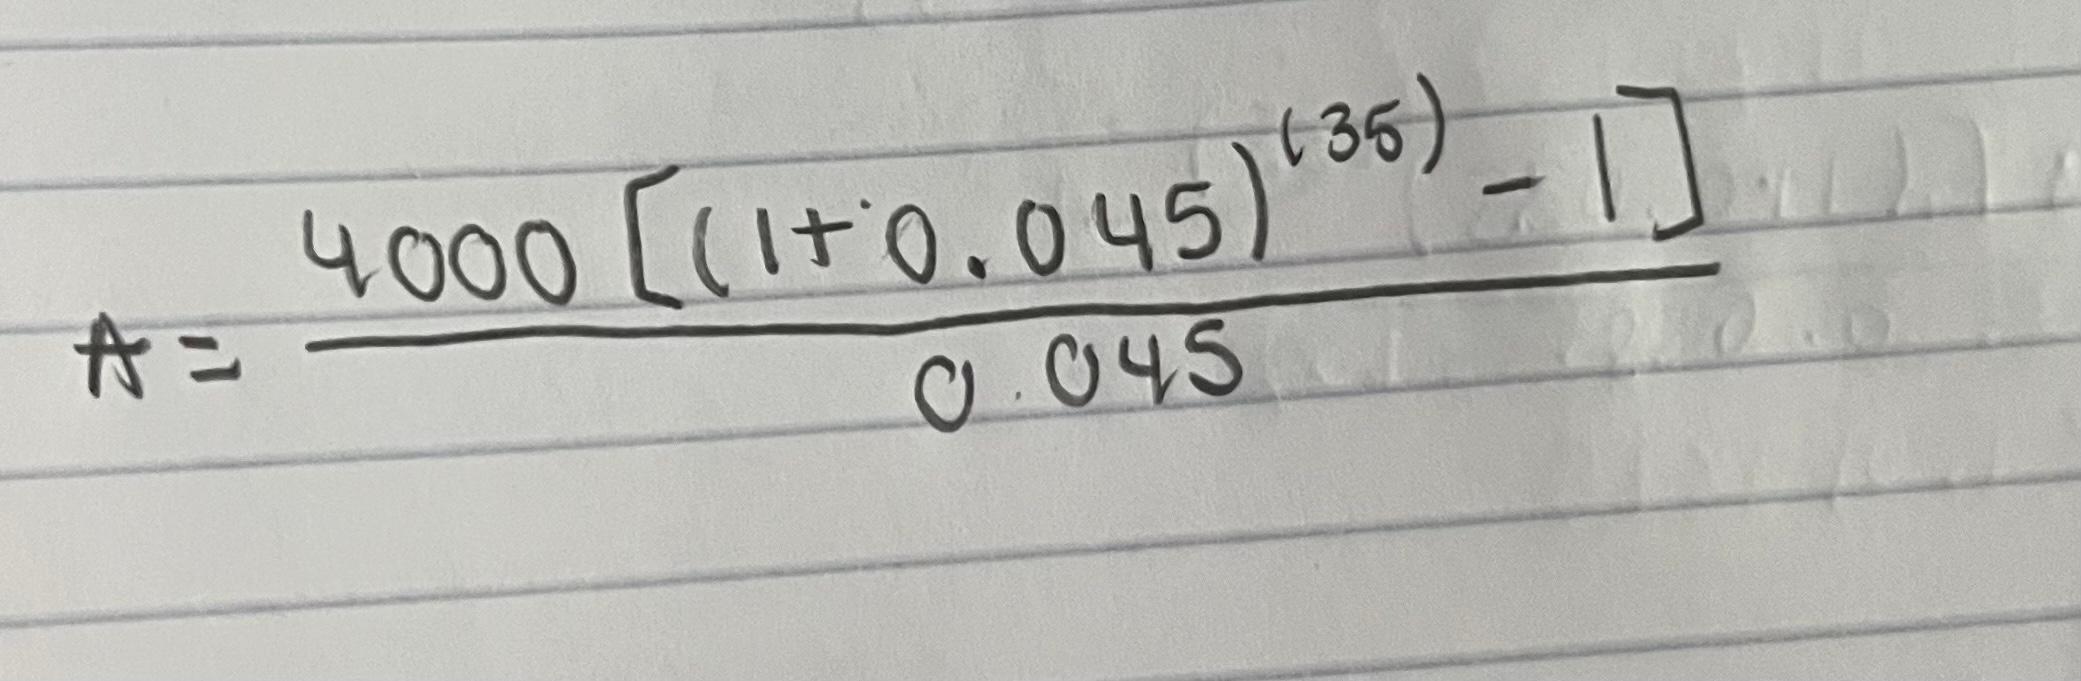 A = \frac{4000 [(1+0.045)^{(35)} - 1]}{0.045}